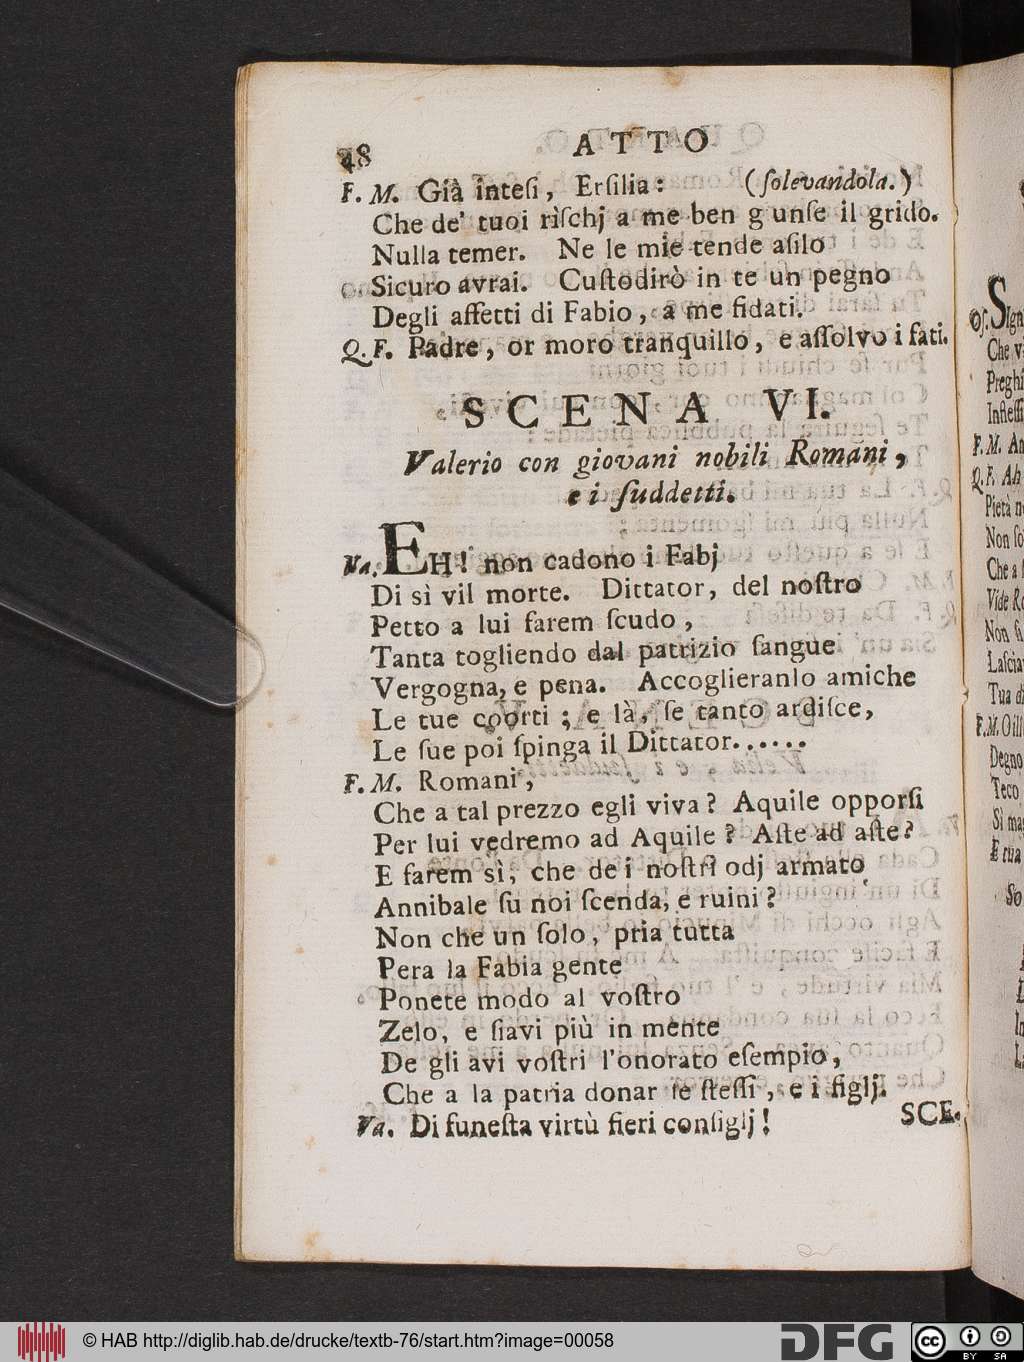 48 ATTO
F. M. Già inteſi, Erſilia: (ſolevandola.)
Che de' tuoi riſchj a me ben g unſe il grido.
Nulla temer. Ne le mie tende aſilo
Sicuro avrai. Cuſtodirò in te un pegno
Degli affetti di Fabio, a me fidati.
Q. F. Padre, or moro tranquillo, e aſſolvo i fati.
SCENA VI.
Valerio con giovani nobili Romani,
e i ſuddetti.
Va. EH! non cadono i Fabj
Di sì vil morte. Dittator, del noſtro
Petto a lui farem ſcudo,
Tanta togliendo dal patrizio ſangue
Vergogna, e pena. Accoglieranlo amiche
Le tue coorti; e là, ſe tanto ardiſce,
Le ſue poi ſpinga il Dittator......
F. M. Romani,
Che a tal prezzo egli viva? Aquile opporſi
Per lui vedremo ad Aquile? Aſte ad aſte?
E farem sì, che de i noſtri odj armato
Annibale ſu noi ſcenda, e ruini?
Non che un ſolo, pria tutta
Pera la Fabia gente
Ponete modo al voſtro
Zelo, e ſiavi più in mente
De gli avi voſtri l'onorato eſempio,
Che a la patria donar ſe ſteſſi, e i figlj.
Va. Di funeſta virtù fieri conſiglj!
SCE-
SIgn
Che v
Preghi
Infleſſi
F. M. An
Q. F. Ah
Pietà n
Non ſo
Che a
Vide Ro
Non ſi
Laſcia
Tua di
F. M. O ill
Degno
Teco
Sì ma
E tua
So
© HAB http://diglib.hab.de/drucke/textb-76/start.htm?image=00058
DFG
cc BY SA